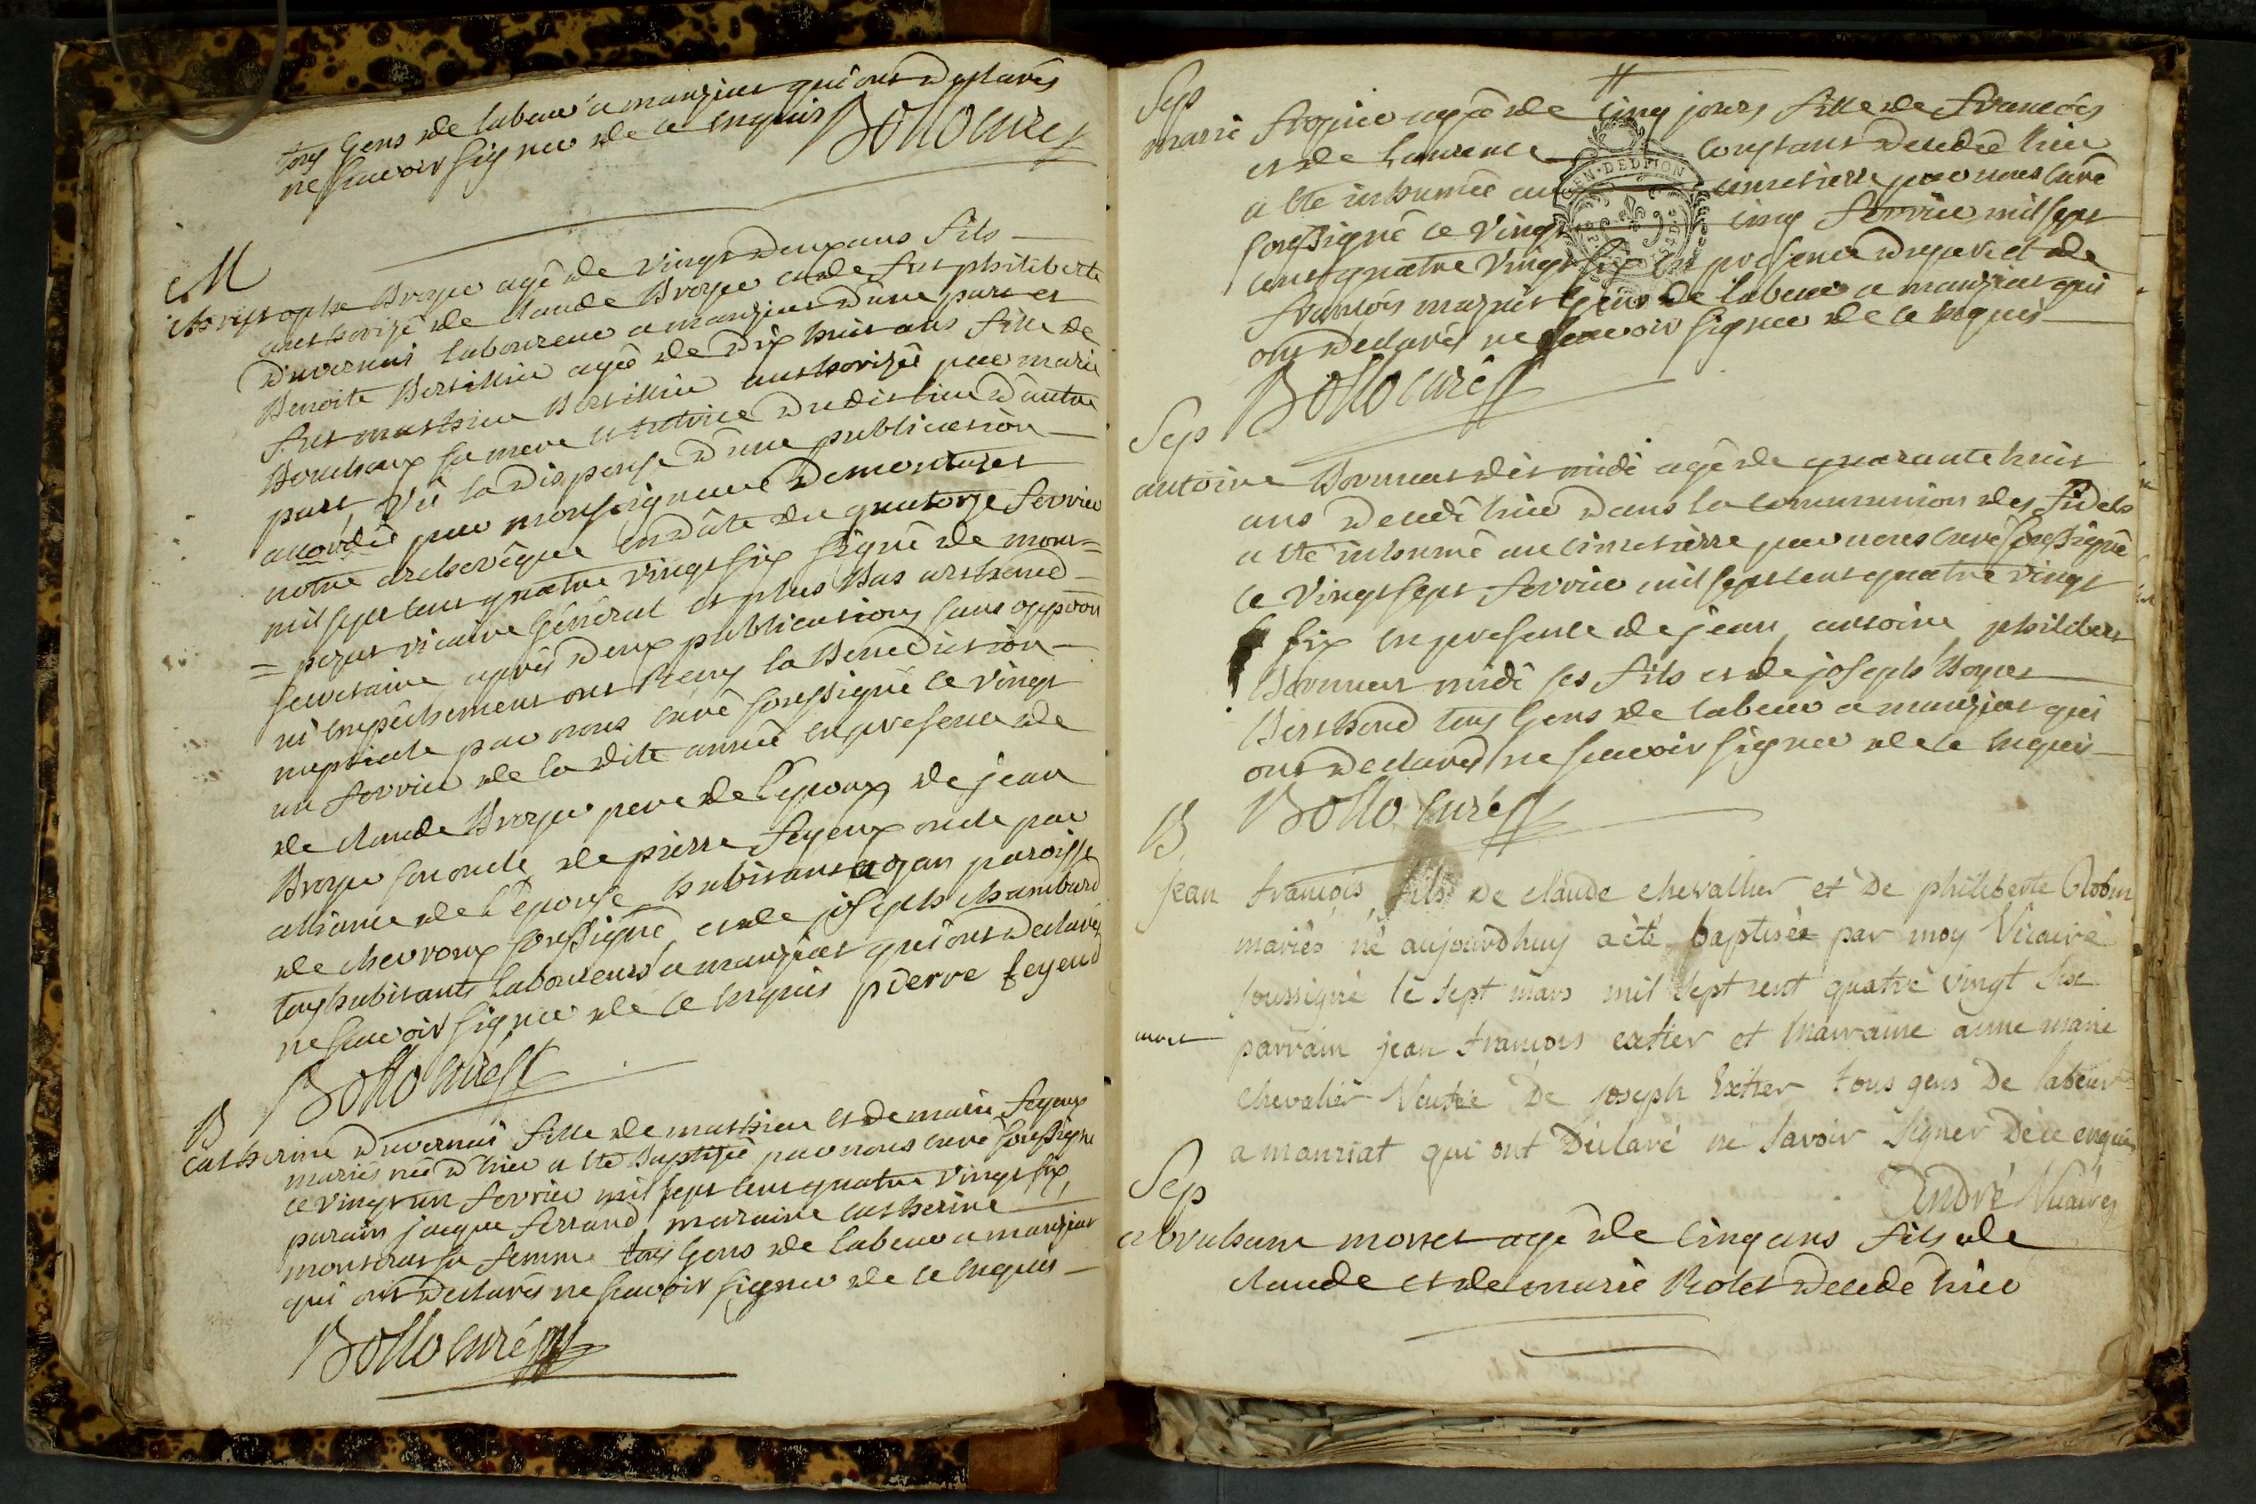 tous gens de labeur a manziat qui ont declarés
ne scavoir signer de ce enquis Bollo curé
M
christophe Broyer agé de vingt deux ans fils
authorisé de claude Broyer et de fut philiberte
Duvernai laboureur a manziat d'une part et
Benoite Bertillier agée de dix huit ans fille de
fut mathieu Bertillier authorisée par marie
Bouchoux sa mere et tutrice du dit lieu d'autre
part, Vû la dispense d'une publication
accordée par monseigneur De montazet
notre archevêque en date du quatorze fevrier
mil sept cent quatre vingt six signé de mon=
= pezat vicaire Général et plus bas
secretaire, après deux publications sans opp̃on
ni empêchement ont Reçu la Benediction
nuptiale par nous curé soussigné ce vingt
un fevrier de la dite année en presence de
de claude Broyer pere de l'epoux, de jean
Broyer son oncle, de pierre feyeux oncle par
alliance de l'epouse, habitant a ozan paroisse
de chevroux soussigné, et de joseph chambard
tous habitants laboureurs a manziat qui ont declarés
ne scavoir signer de ce enquis pierre feyeux
Bollo curé
B
catherine Duvernai fille de mathieu et de marie feyeux
mariés née d'hier a été baptisée par nous curé soussigné
ce vingt un fevrier mil sept cent quatre vingt six,
parain jacque ferrand, maraine catherine
montcrat sa femme tous gens de labeur a manziat
qui ont declarés ne scavoir signer de ce enquis
Bollo curé
Sep
marie agée de cinq jours fille de francois
et de Laurence constant decedée hier
a été inhumée au cimetierre par nous curé
GEN·DE DIJON
soussigné ce vingt cinq fevrier mil sept
cent quatre vingt six en presence du pere et de
francois gens de labeur a manziat qui
ont declarés ne scavoir signer de ce enquis
Bollo curé
Sep
antoine Bonnet dit midi agé de quarante huit
ans decedé hier dans la communion des fidels
a été inhumé au cimetierre par nous curé soussigné
ce vingt sept fevrier mil sept cent quatre vingt
six en presence de jean, antoine, philibert
Bonnet midi ses fils et de joseph Boyer
Berthoud tous gens de labeur a manziat qui
ont declarés ne scavoir signer de ce enquis
Bollo curé
B
jean francois fils de claude chevallier et de philiberte Robin
mariés né aujourdhuy a été baptisée par moy Vicaire
soussigné le sept mars mil sept cent quatre vingt six
mort
parrain jean francois catier et marraine anne marie
chevalier de joseph tous gens de labeur
a manziat qui ont declaré ne savoir signer de ce enquis
André Vicaire
Sep
abraham morel agé de cinq ans fils de
claude et de marie Rolet decede hier